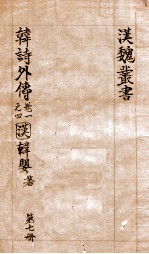 漢魏叢書
韓詩外傳 卷一之四 漢 韓嬰 著
第七册